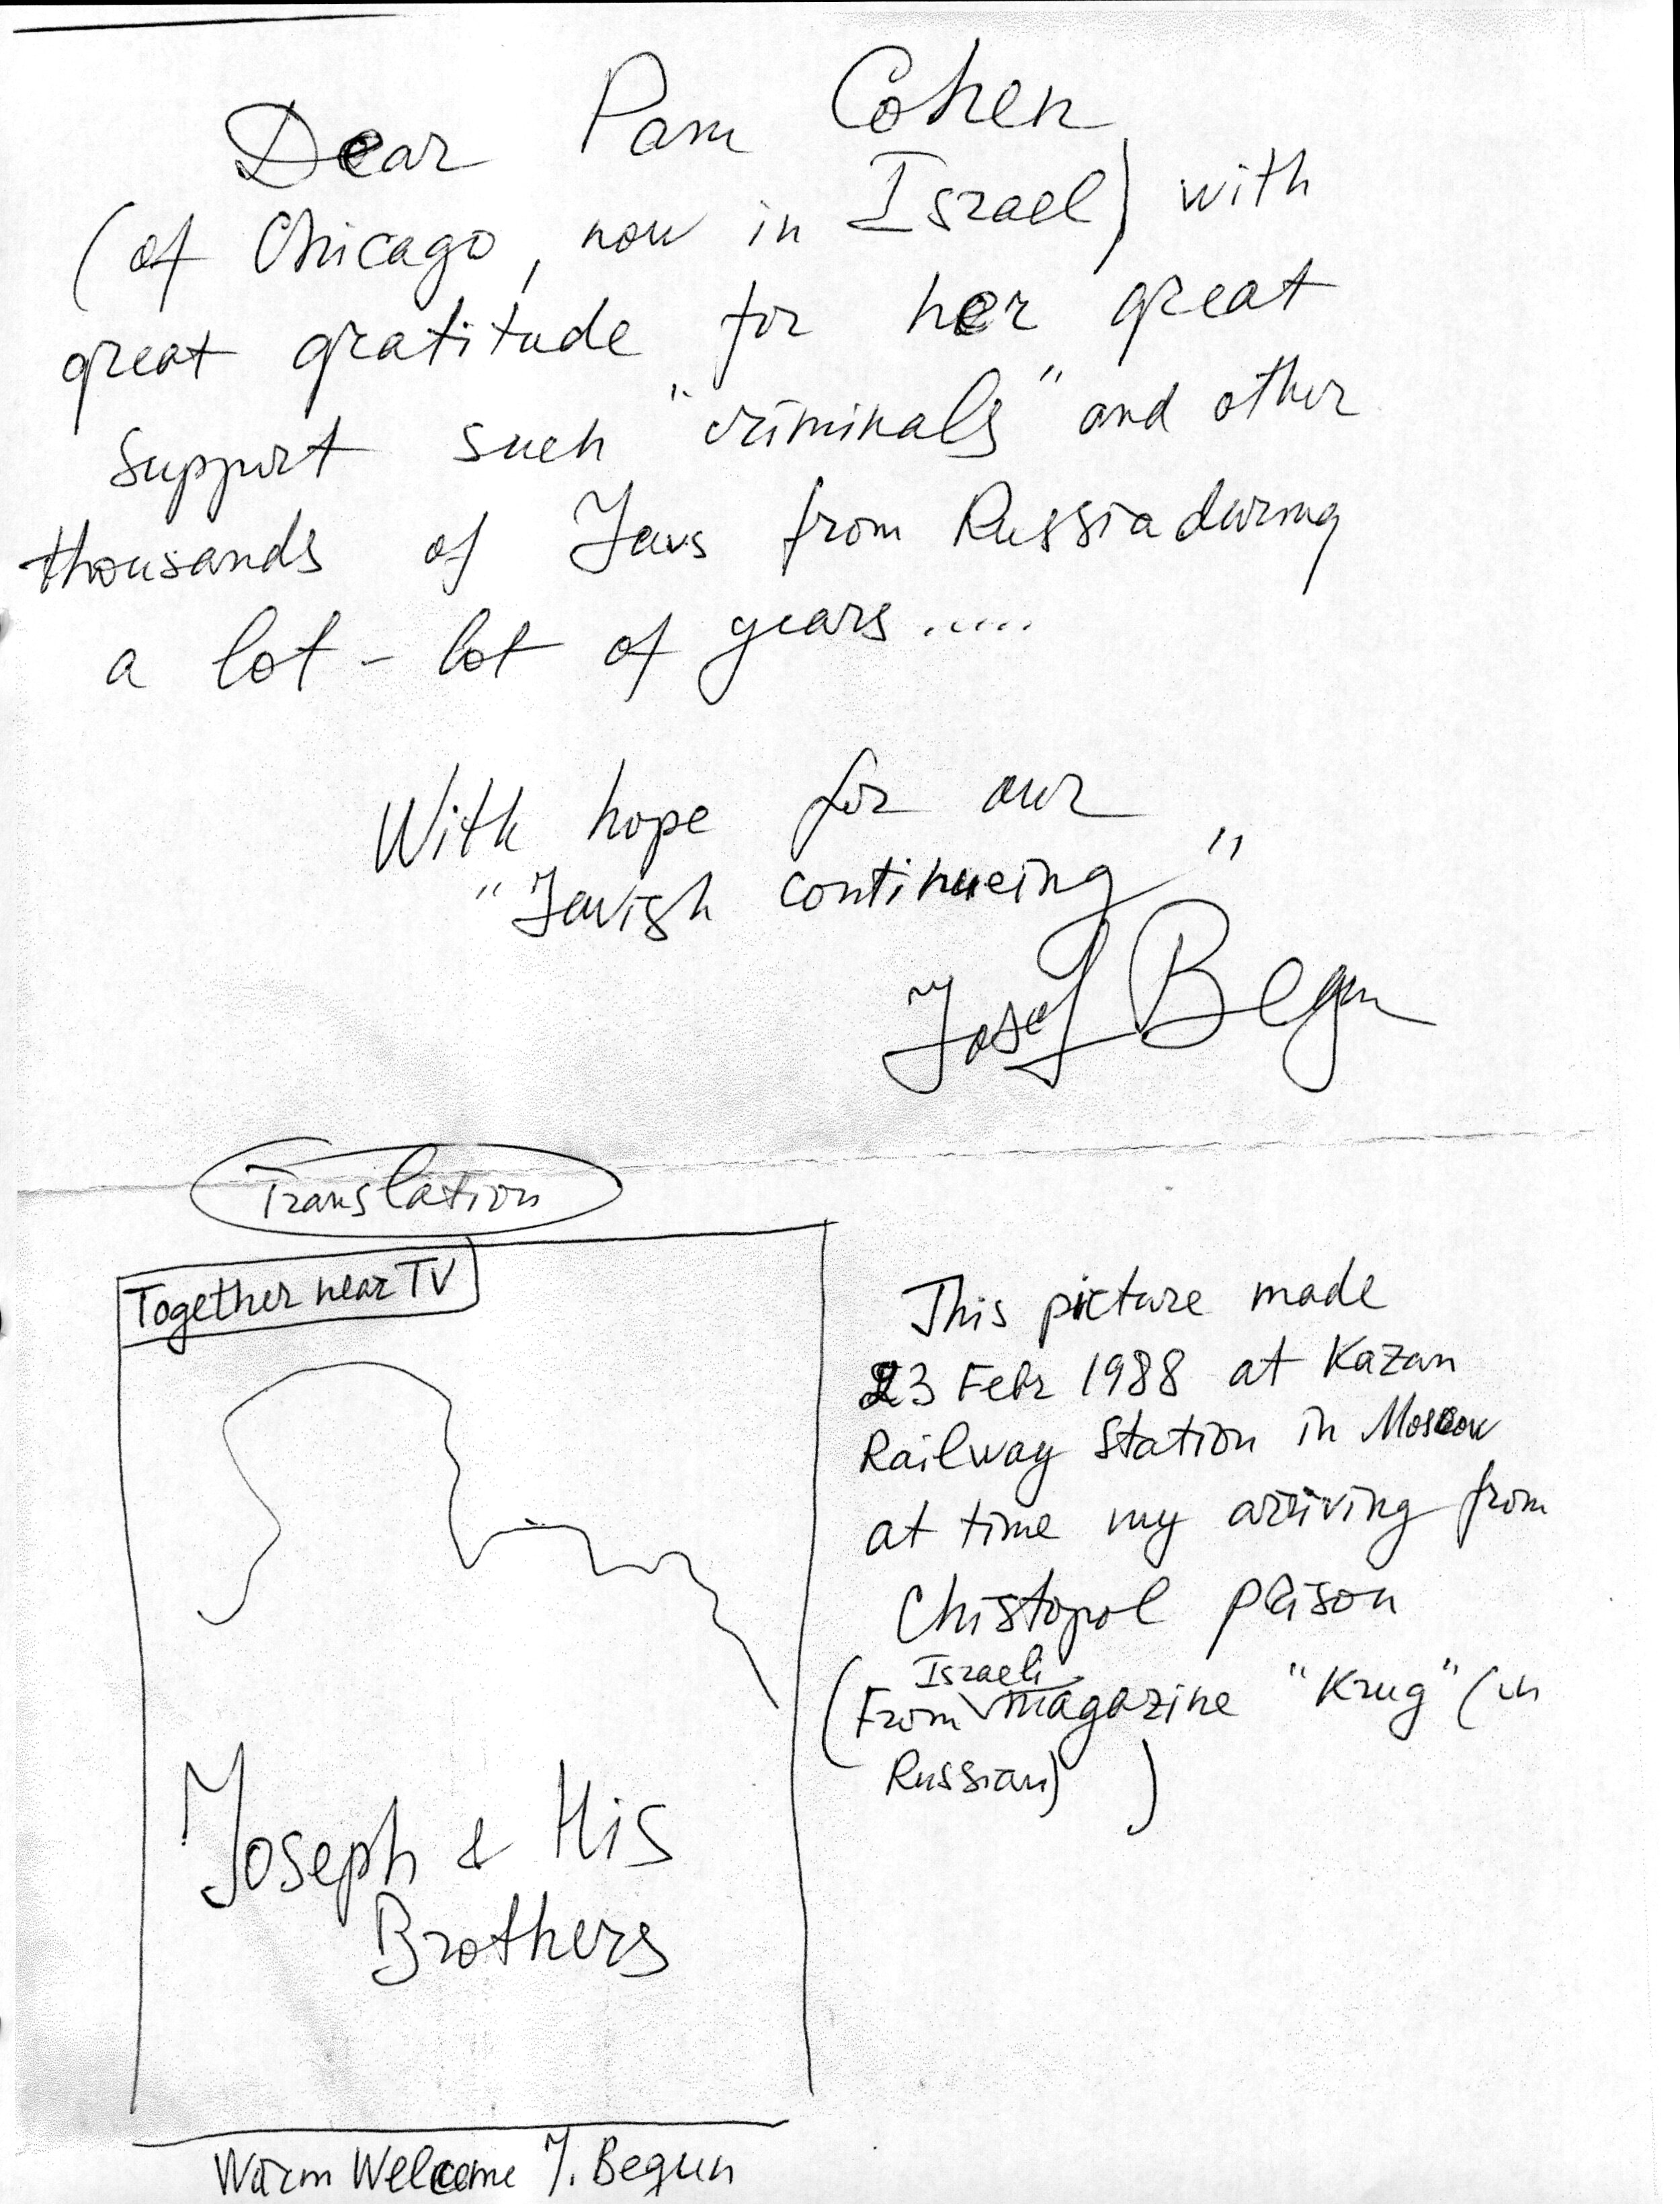 Dear Pam Cohen
(of Chicago, now in Israel) with
great gratitude for her great
support such "criminals" and other
thousands of Jews from Russia during
a lot - lot of years.....
With hope for our
"Jewish continueing"
Josef Begun
Translation
Together near TV
Joseph & His
Brothers
Warm Welcome J. Begun
This picture made
23 Febr 1988 at Kazan
Railway Station in Moscow
at time my arriving from
Chistopol prison
(From Israeli magazine "Krug" (in
Russian) )